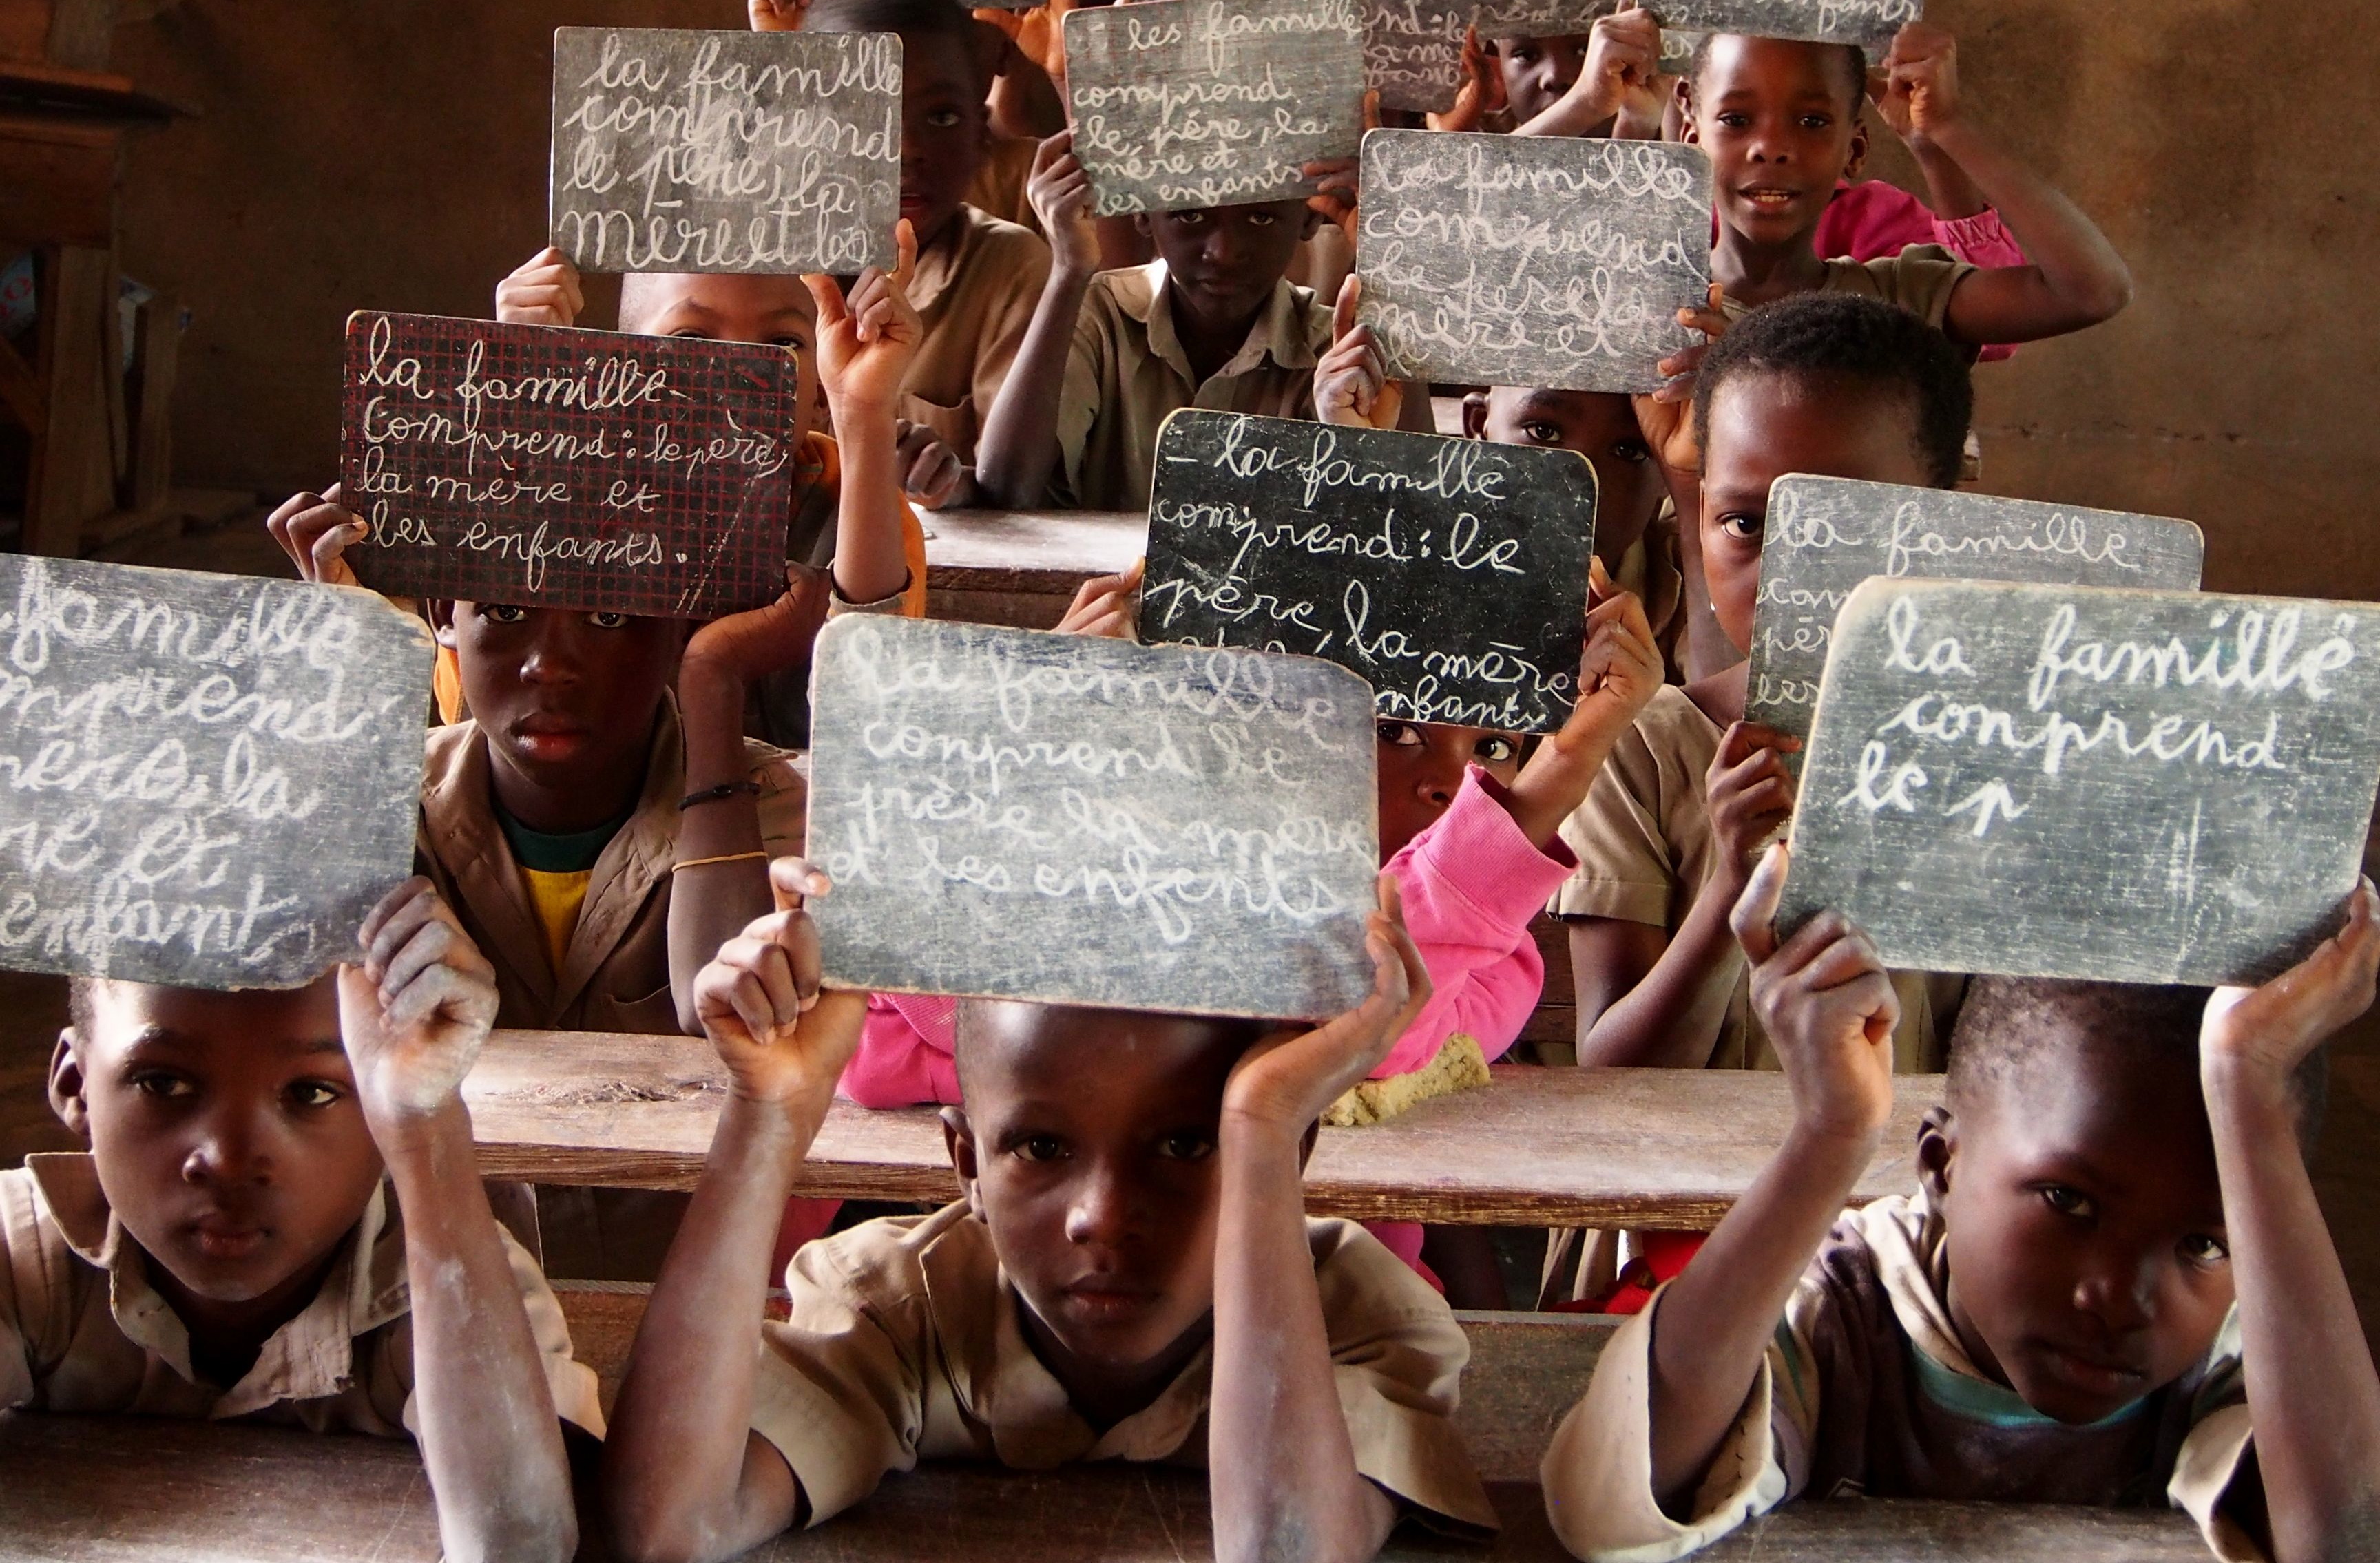 les famille
comprend
le père, la
mère et
les enfants
la famille
comprend
le père, la
mère et les
la famille
comprend
le père la
mère et
la famille
comprend : le père,
la mère et
les enfants.
- la famille
comprend : le
père, la mère
nfants
la famille
com
pèr
les
famille
mprend :
la
re et
enfant
la famille
conprend le
prère la mere
et les enfents
la famille
conprend
le p